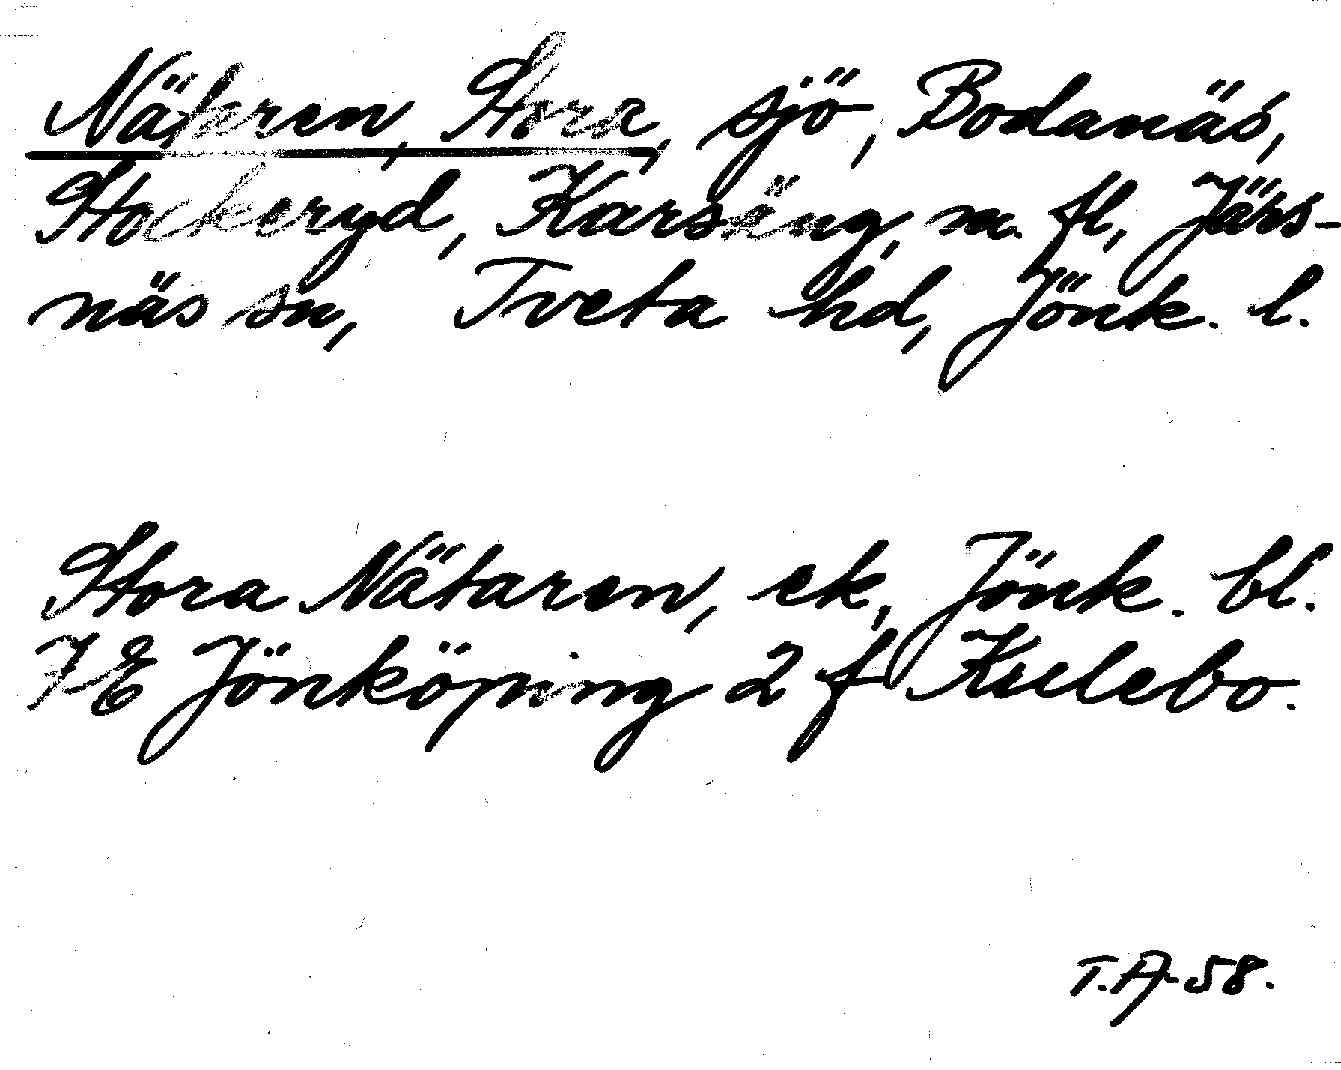 Nätaren, Stora, sjö, Bodanäs,
Stockeryd, Karsäng, m. fl., Järs-
näs sn, Tveta hd, Jönk. l.
Stora Nätaren, ek, Jönk. bl.
7E Jönköping 2 f Kulebo.
T.A-58.